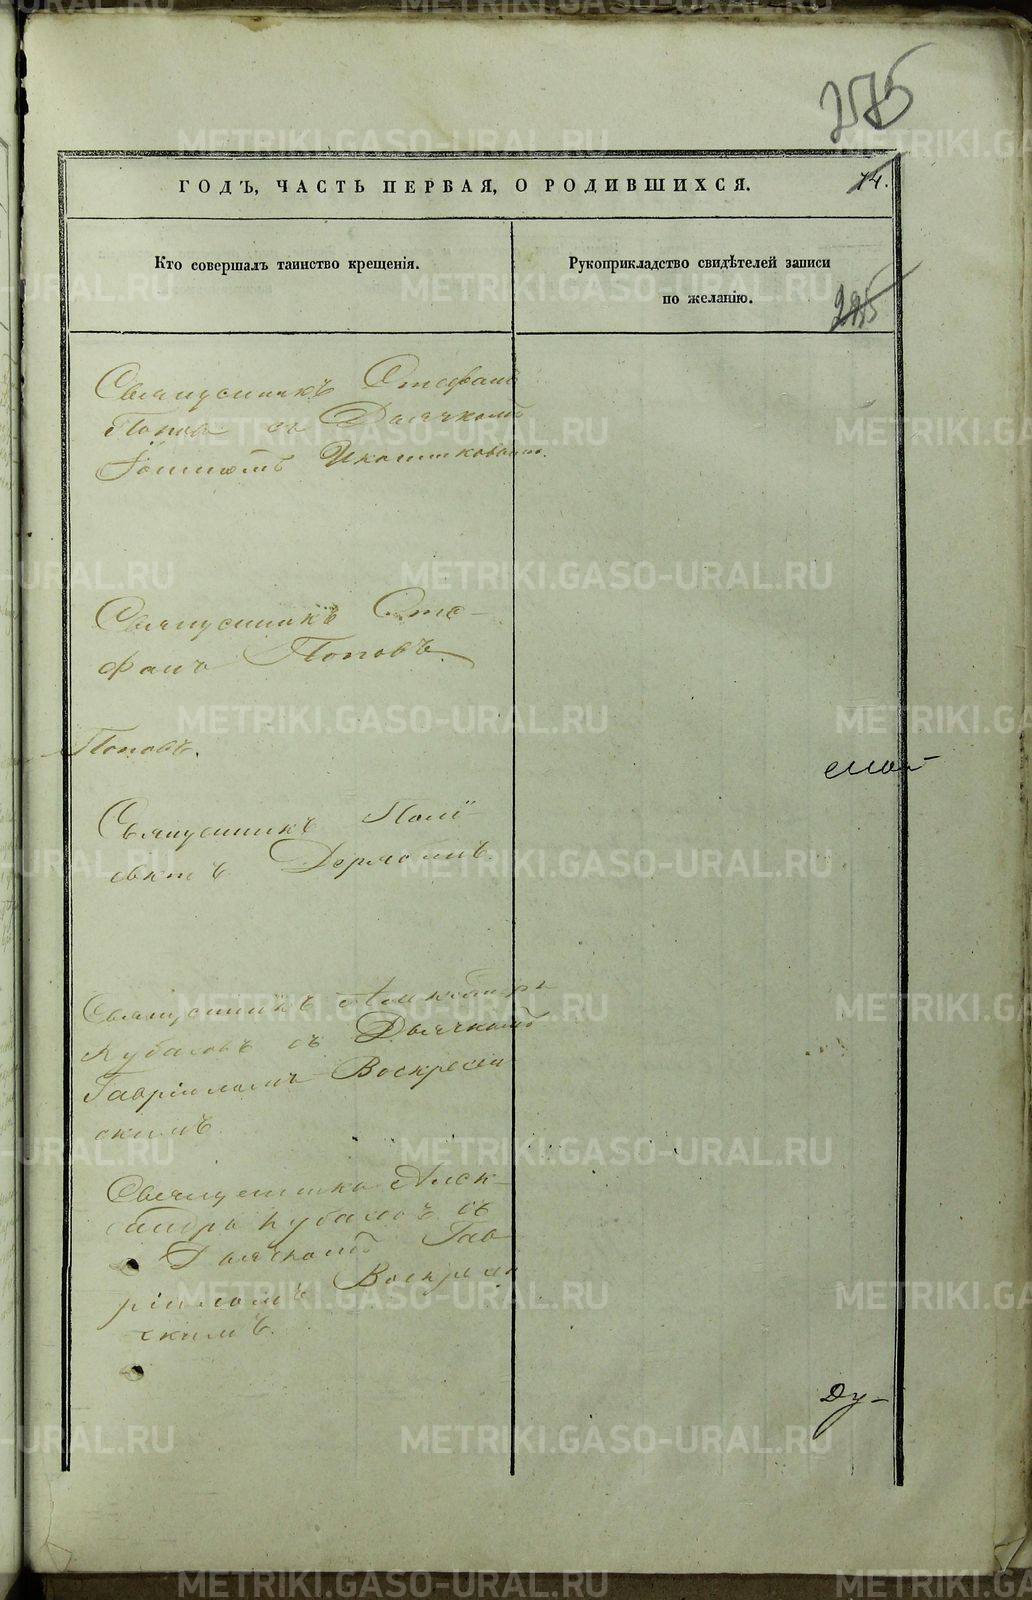 275
ГОДЪ, ЧАСТЬ ПЕРВАЯ, О РОДИВШИХСЯ.
74.
Кто совершалъ таинство крещенія.
Рукоприкладство свидѣтелей записи
по желанію.
Священникъ Стефанъ
Поповъ съ Дьячкомъ
Священникъ Сте-
фанъ Поповъ
Поповъ.
Священникъ Поли-
евктъ
Священникъ Александръ
Кубасовъ съ Дьячкомъ
Гавріиломъ Воскресен
скимъ
Священникъ Алек-
сандръ Кубасовъ съ
Дьячкомъ Гав
ріиломъ Воскресен
скимъ.
Ду-
METRIKI.GASO-URAL.RU